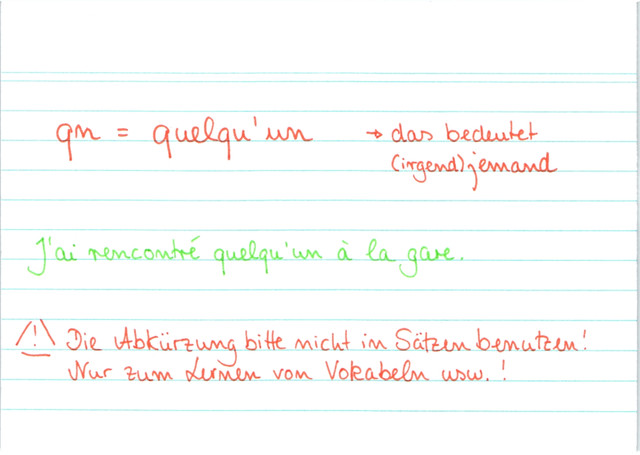 qn = quelqu'un → das bedeutet
(irgend)jemand
J'ai rencontré quelqu'un à la gare.
⚠ Die Abkürzung bitte nicht in Sätzen benutzen!
Nur zum Lernen von Vokabeln usw.!